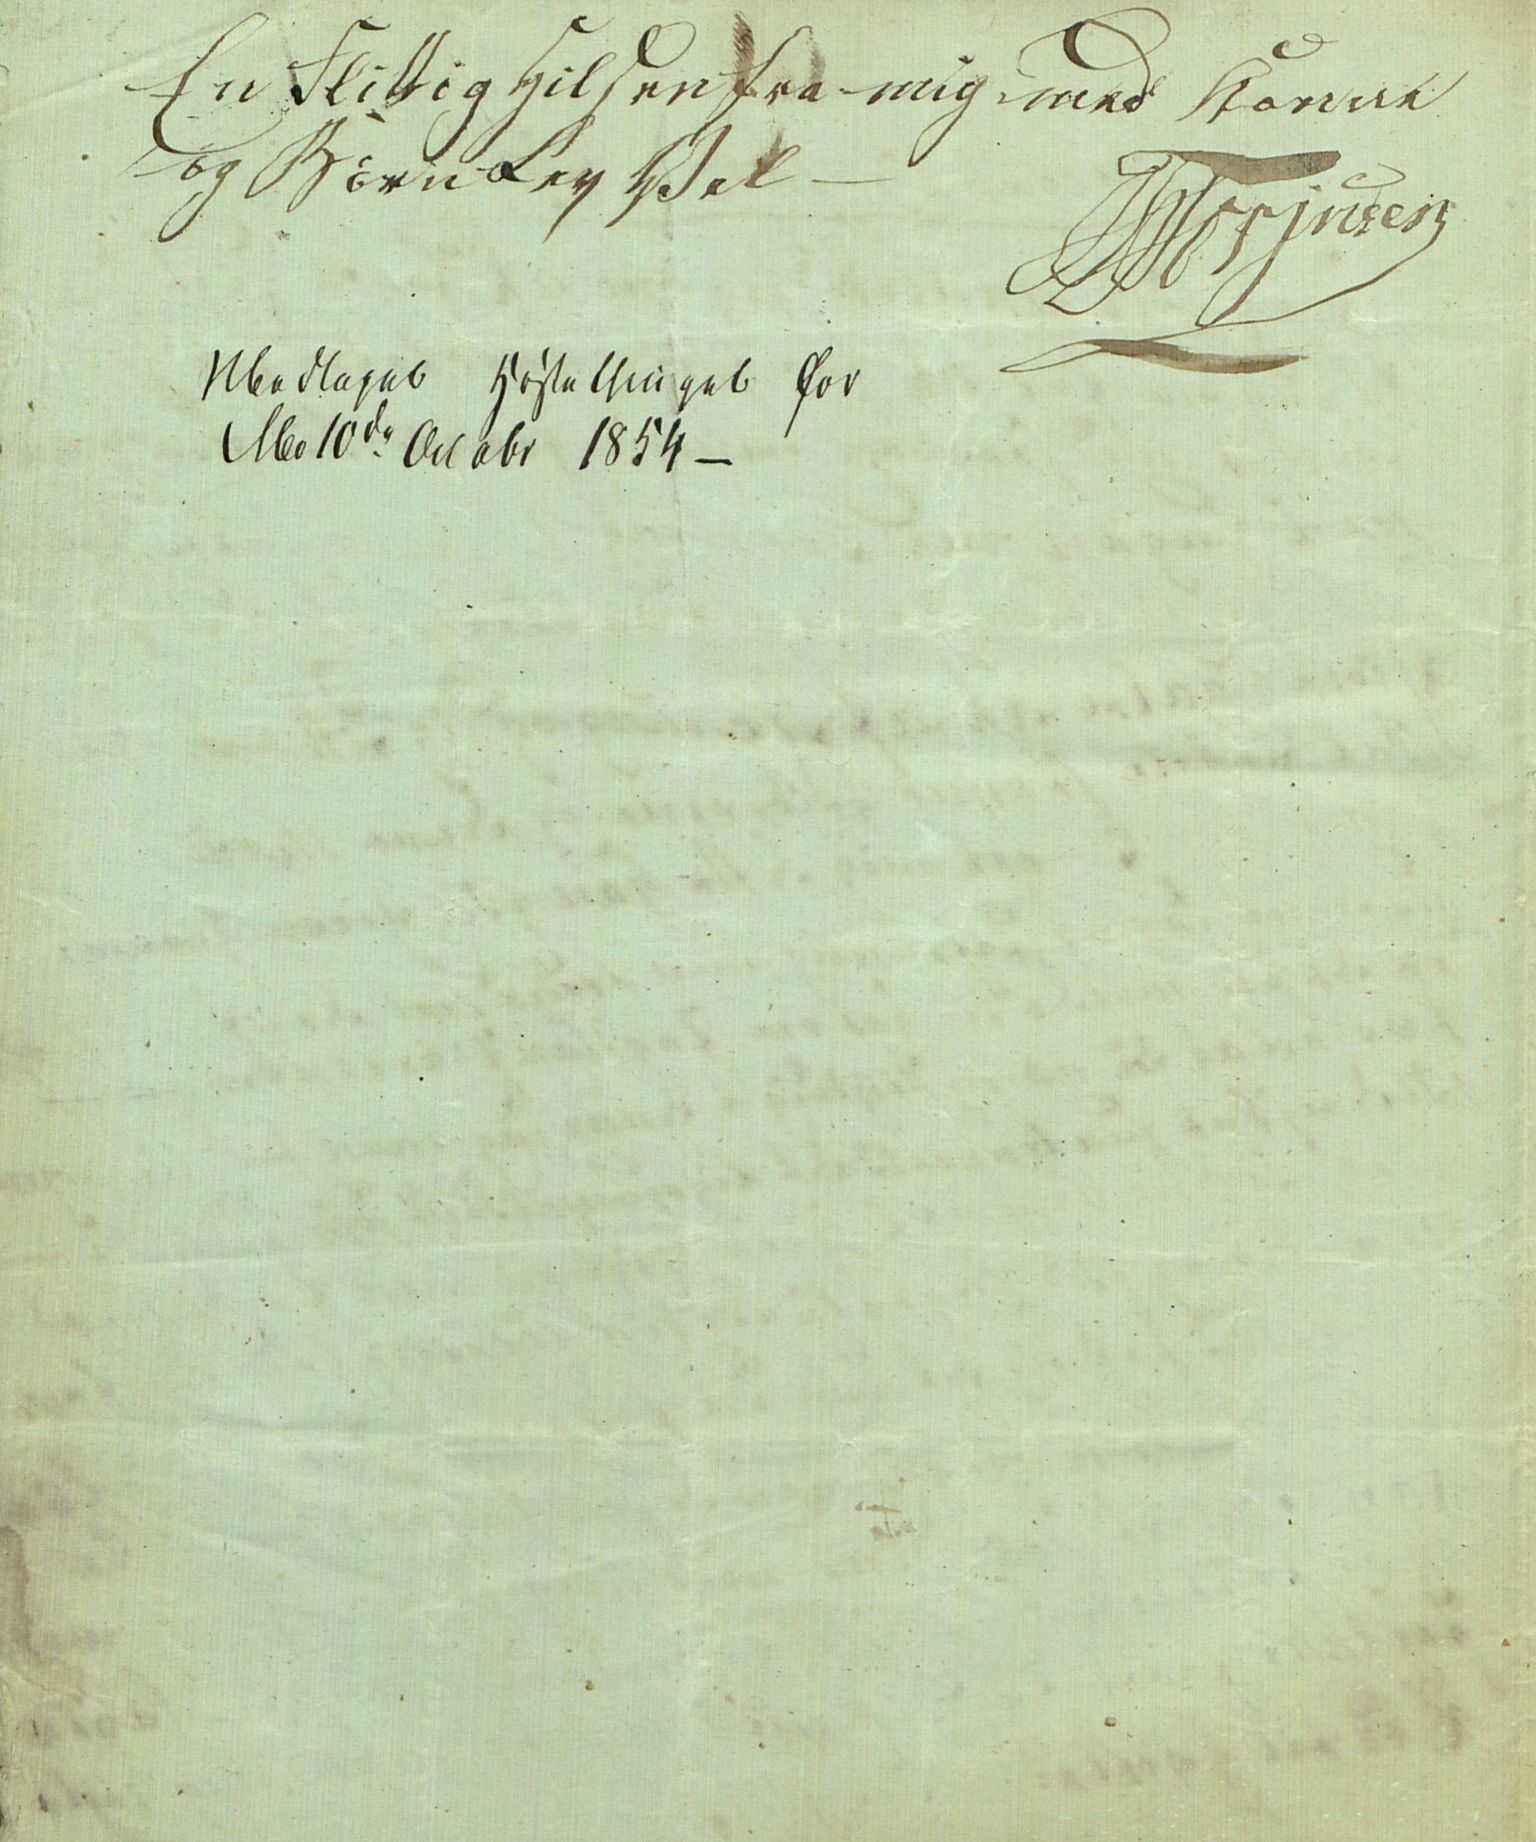 En Flittig Hilsen fra mig med Konne
og Börn Lev Vel —
Modtaget Høstethinget for
Mo 10de Octobr 1854 —